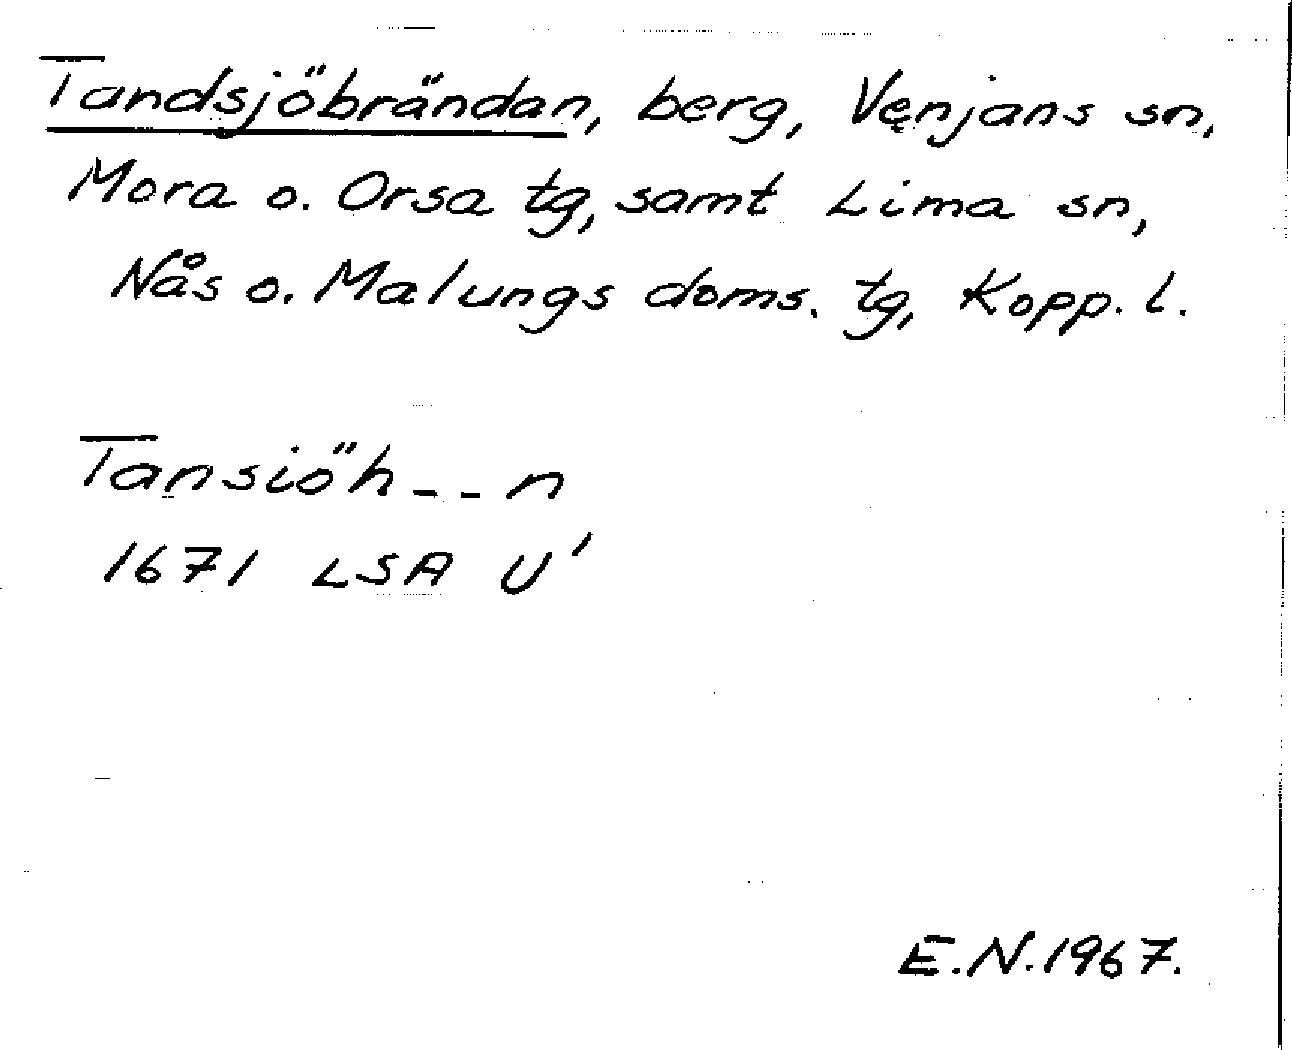 Tandsjöbrändan, berg, Venjans sn,
Mora o. Orsa tg, samt Lima sn,
Nås o. Malungs doms. tg, Kopp. l.
Tansiöh--n
1671 LSA U'
E.N. 1967.